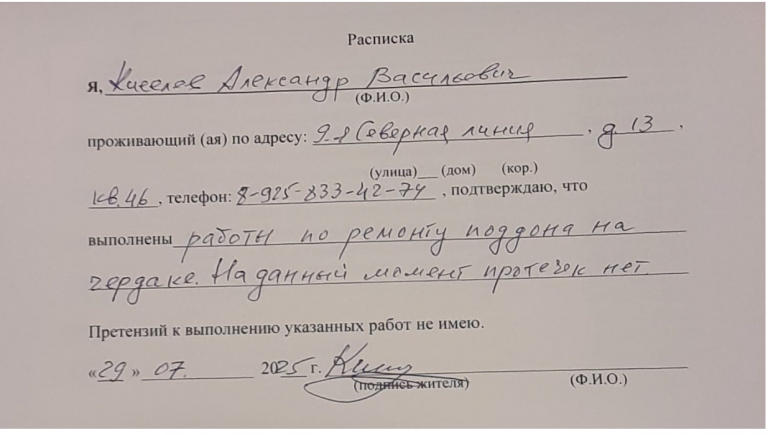 Расписка
Я, Киселев Александр Васильевич
(Ф.И.О.)
проживающий (ая) по адресу: 9-я Северная линия, д. 13,
(улица) (дом) (кор.)
кв. 46, телефон: 8-925-833-42-74, подтверждаю, что
выполнены работы по ремонту поддона на
чердаке. На данный момент протечек нет.
Претензий к выполнению указанных работ не имею.
«29» 07. 2025 г.
(подпись жителя) (Ф.И.О.)